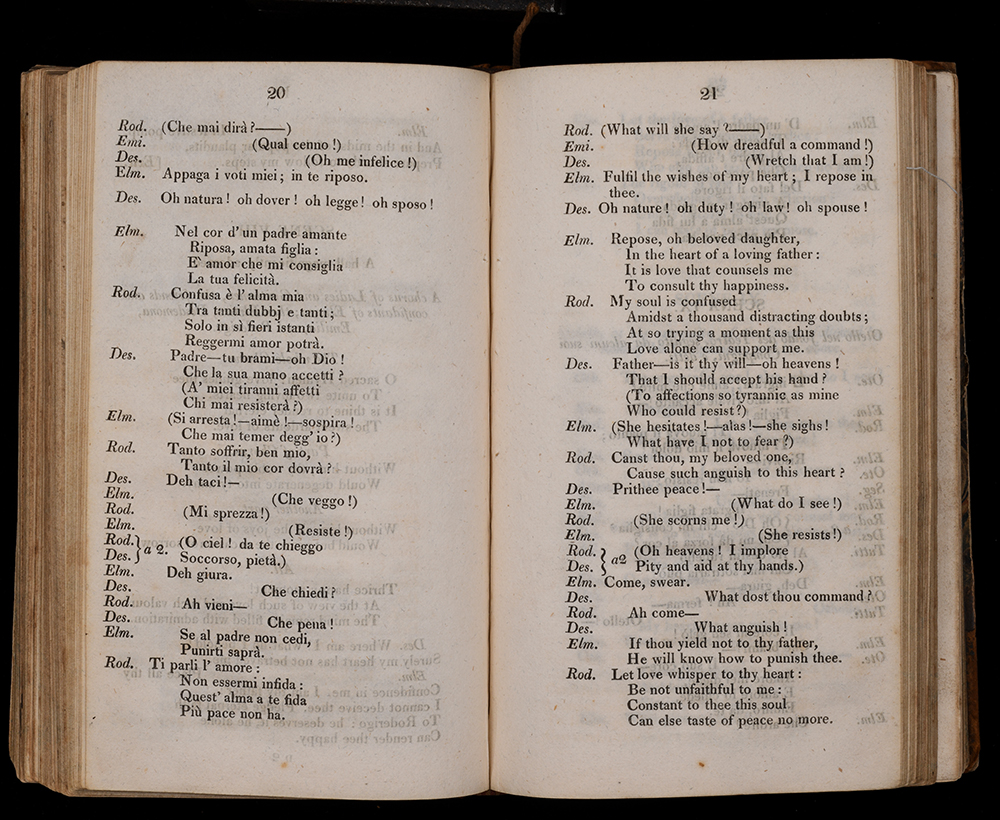 20
Rod. (Che mai dirà?——)
Emi. (Qual cenno!)
Des. (Oh me infelice!)
Elm. Appaga i voti miei; in te riposo.
Des. Oh natura! oh dover! oh legge! oh sposo!
Elm. Nel cor d' un padre amante
Riposa, amata figlia:
E' amor che mi consiglia
La tua felicità.
Rod. Confusa è l' alma mia
Tra tanti dubbj e tanti;
Solo in sì fieri istanti
Reggermi amor potrà.
Des. Padre—tu brami—oh Dio!
Che la sua mano accetti?
(A' miei tiranni affetti
Chi mai resisterà?)
Elm. (Si arresta!—aimè!—sospira!
Che mai temer degg' io?)
Rod. Tanto soffrir, ben mio,
Tanto il mio cor dovrà?
Des. Deh taci!—
Elm. (Che veggo!)
Rod. (Mi sprezza!)
Elm. (Resiste!)
Rod. } a 2. (O ciel! da te chieggo
Des. } Soccorso, pietà.)
Elm. Deh giura.
Des. Che chiedi?
Rod. Ah vieni—
Des. Che pena!
Elm. Se al padre non cedi,
Punirti saprà.
Rod. Ti parli l' amore:
Non essermi infida:
Quest' alma a te fida
Più pace non ha.
21
Rod. (What will she say?——)
Emi. (How dreadful a command!)
Des. (Wretch that I am!)
Elm. Fulfil the wishes of my heart; I repose in
thee.
Des. Oh nature! oh duty! oh law! oh spouse!
Elm. Repose, oh beloved daughter,
In the heart of a loving father:
It is love that counsels me
To consult thy happiness.
Rod. My soul is confused
Amidst a thousand distracting doubts;
At so trying a moment as this
Love alone can support me.
Des. Father—is it thy will—oh heavens!
That I should accept his hand?
(To affections so tyrannic as mine
Who could resist?)
Elm. (She hesitates!—alas!—she sighs!
What have I not to fear?)
Rod. Canst thou, my beloved one,
Cause such anguish to this heart?
Des. Prithee peace!—
Elm. (What do I see!)
Rod. (She scorns me!)
Elm. (She resists!)
Rod. } a2 (Oh heavens! I implore
Des. } Pity and aid at thy hands.)
Elm. Come, swear.
Des. What dost thou command?
Rod. Ah come—
Des. What anguish!
Elm. If thou yield not to thy father,
He will know how to punish thee.
Rod. Let love whisper to thy heart:
Be not unfaithful to me:
Constant to thee this soul
Can else taste of peace no more.